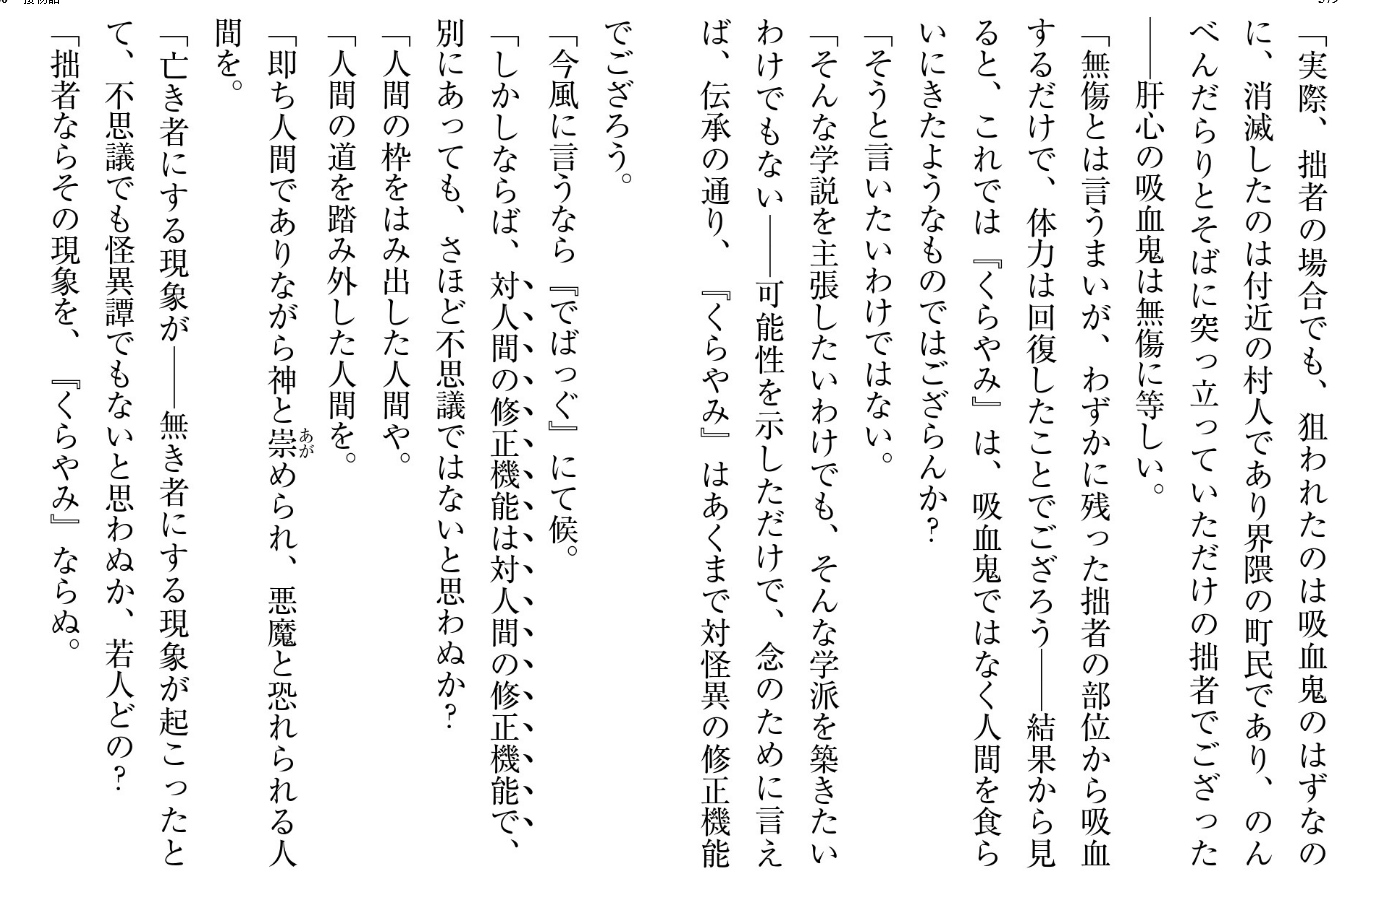 「実際、拙者の場合でも、狙われたのは吸血鬼のはずなの
に、消滅したのは付近の村人であり界隈の町民であり、のん
べんだらりとそばに突っ立っていただけの拙者でござった
――肝心の吸血鬼は無傷に等しい。
「無傷とは言うまいが、わずかに残った拙者の部位から吸血
するだけで、体力は回復したことでござろう――結果から見
ると、これでは『くらやみ』は、吸血鬼ではなく人間を食ら
いにきたようなものではござらんか？
「そうと言いたいわけではない。
「そんな学説を主張したいわけでも、そんな学派を築きたい
わけでもない――可能性を示しただけで、念のために言え
ば、伝承の通り、『くらやみ』はあくまで対怪異の修正機能
でござろう。
「今風に言うなら『でばっぐ』にて候。
「しかしならば、対人間の修正機能は対人間の修正機能で、
別にあっても、さほど不思議ではないと思わぬか？
「人間の枠をはみ出した人間や。
「人間の道を踏み外した人間を。
「即ち人間でありながら神と崇あがめられ、悪魔と恐れられる人
間を。
「亡き者にする現象が――無き者にする現象が起こったと
て、不思議でも怪異譚でもないと思わぬか、若人どの？
「拙者ならその現象を、『くらやみ』ならぬ。